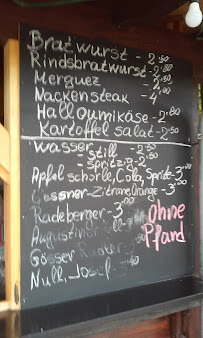 Bratwurst - 2.50
Rindsbratwurst - 2.80
Merguez - 2.50
Nackensteak - 4.00
Halloumikäse - 2.80
Kartoffelsalat - 2.50
Wasser - still - 2.50
- spritzig - 2.50
Apfelschorle, Cola, Sprite - 3.00
Gessner - Zitrone/Orange - 3.00
Radeberger - 3.00
Augustiner
Gösser
Null, Josef
Ohne
Pfand